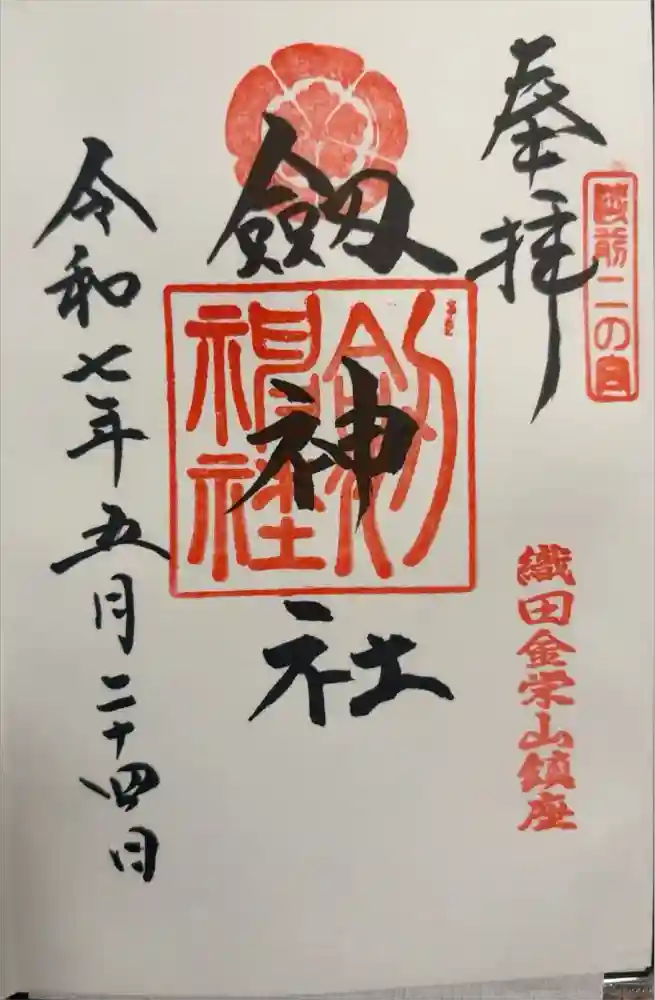 奉拝
越前二の宮
織田金栄山鎮座
劔神社
劔神社
令和七年五月二十四日